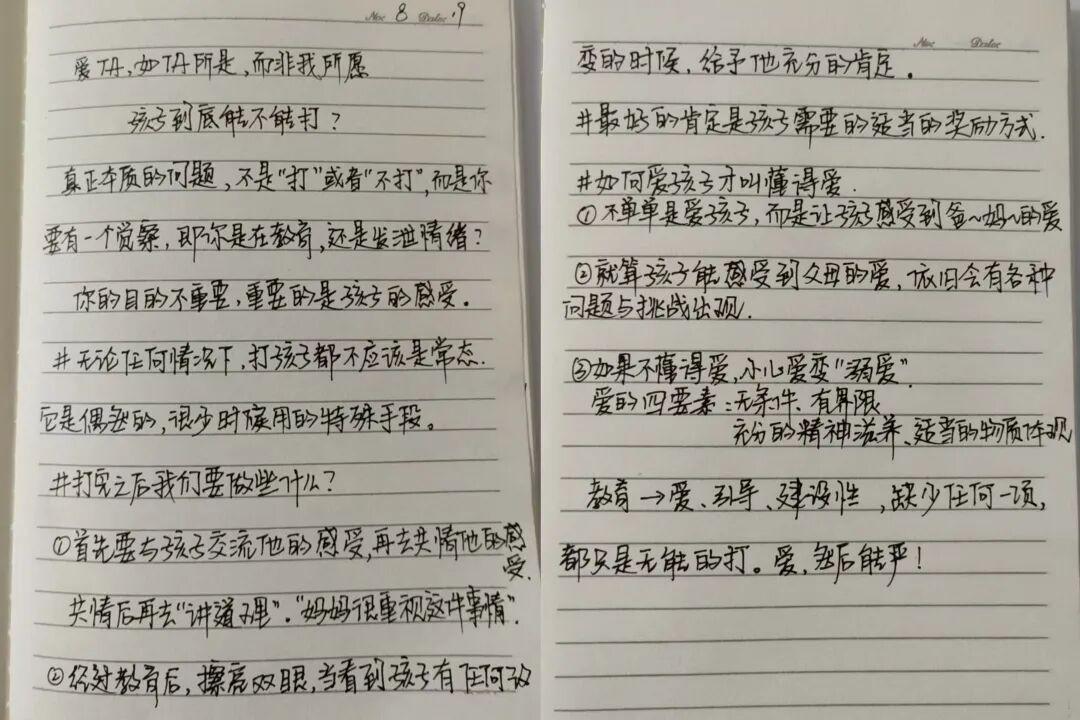 No. 8 Date .9
爱TA，如TA所是，而非我所愿
孩子到底能不能打？
真正本质的问题，不是“打”或者“不打”，而是你
要有一个觉察，即你是在教育，还是发泄情绪？
你的目的不重要，重要的是孩子的感受。
#无论任何情况下，打孩子都不应该是常态.
它是偶然的，很少时候用的特殊手段。
#打完之后我们要做些什么？
①首先要与孩子交流他的感受，再去共情他的感
受.
共情后再去“讲道理”.“妈妈很重视这件事情”.
②经过教育后，擦亮双眼，当看到孩子有任何改
No. Date
变的时候，给予他充分的肯定。
#最好的肯定是孩子需要的适当的奖励方式.
#如何爱孩子才叫懂得爱.
①不单单是爱孩子，而是让孩子感受到爸～妈～的爱
②就算孩子能感受到父母的爱，依旧会有各种
问题与挑战出现.
③如果不懂得爱，小心爱变“溺爱”.
爱的四要素：无条件、有界限
充分的精神滋养、适当的物质体现
教育→爱、引导、建设性，缺少任何一项，
都只是无能的打。爱，然后能严！